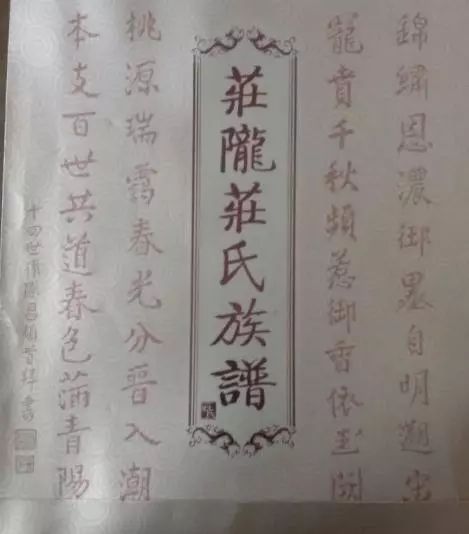 錦繡恩濃御墨自明出
寵賁千秋頻惹御香依玉闕
莊隴莊氏族譜
桃源瑞靄春光分晉入潮
本支百世共道春色滿青陽
十四世裔孫昌書